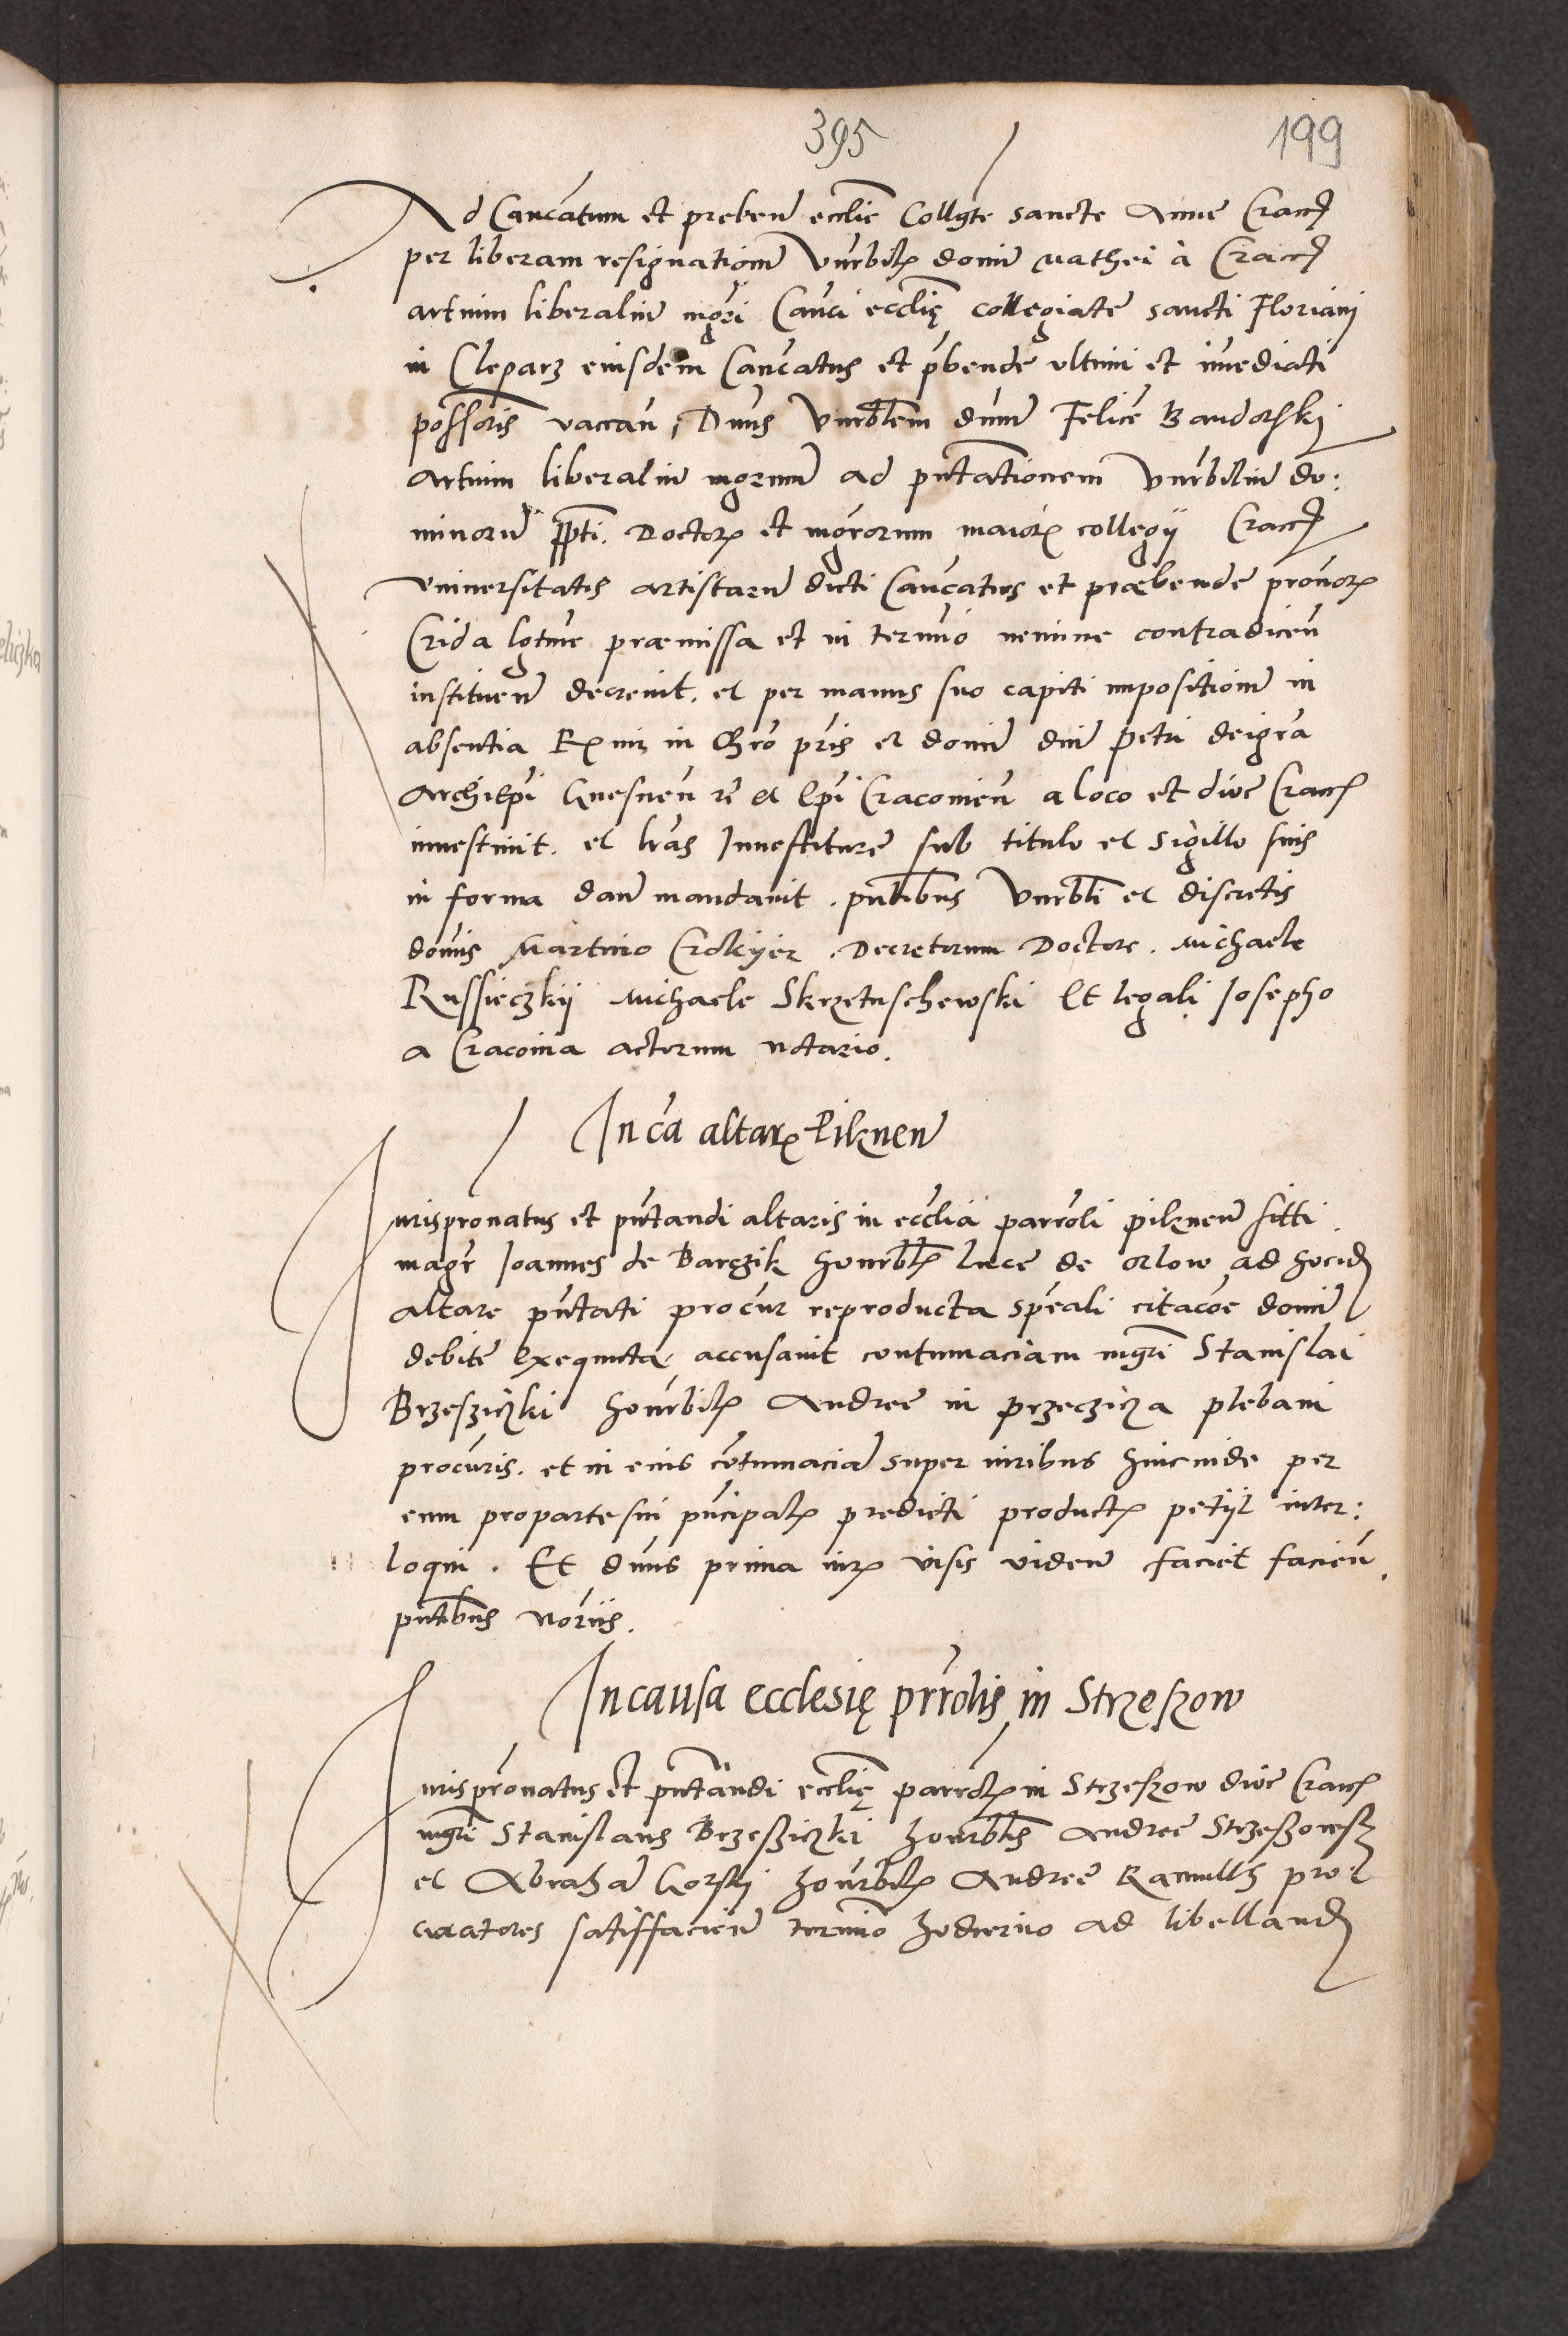 395
199
Ad Cancatum et preben̄ ecclie Collgte sancte Anne Craco
per liberam resignationē Vnrbilis domin̄ Mathei à Craco
artium liberaliū mgri Canci eccłię collegiate sancti Floriani
in Cleparz eiusdem Cancatus et pbende vltimi et imediati
possoris vacan̄, Dnus Vnrbłem dnum̄ Felicē Bandorski
artium liberaliū mgrum̄ ad pntationem Vnrbiliū do:
minorū ppti. Doctorȝ et mgrorum maiorȝ collegij Craco
Vniuersitatis artistarū dicti Cancatus et præbende prouorȝ
Crida lgtme præmissa et in termīo nemine contradicen̄
instituen̄ decreuit. et per manus suo capiti impositionē in
absentia Rȝmi in Chrō pris et domin̄ dni Petri dei gra
Archiepi Gnesnen̄ et Epi Cracouien̄ a loco et dioc Cracȝ
inuestiuit. et lras Inuestiture sub titulo et sigillo suis
in forma dan̄ mandauit. pntibus Vnrbłi et discretis
domis Martino Crokyer. Decretorum Doctore. Michaele
Russieczkij Michaele Skrzetuschewski Et legali Josepho
a Cracouia actorum notario.
In cā altarȝ Pilznen̄
Jurispronatus et pntandi altaris in ecclia parroli pilznen̄ sitti.
magr Joannes de Barczik honrbłȝ Luce de Orlow ad hocid
altare pntati procur reproducta spēali citacōe domin̄
debite exequuta accusauit contumaciam mgri Stanislai
Brzeszičzki honrbilȝ Andree in przeczicza plebani
procuris. et in eius cōtumaciā super iuribus hincinde per
eum proparte sui pncipalȝ predicti productȝ petijt inter:
loqui. Et dnus prima iurȝ visis viden̄ faciet facien̄.
pntibus noriis.
In causa ecclesię prrolis in Strzeszow
Jurispronatus et pntandi eccłię parrolȝ in Strzeszow dioc Cracȝ
mgri Stanislaus Brzeszičzki honrbłis Andree Strzeszowsȝ
et Abrahā Gorskj honrbilȝ Andree Ramulth pro:
curatores satisfacien̄ termīo hodierno ad libelland